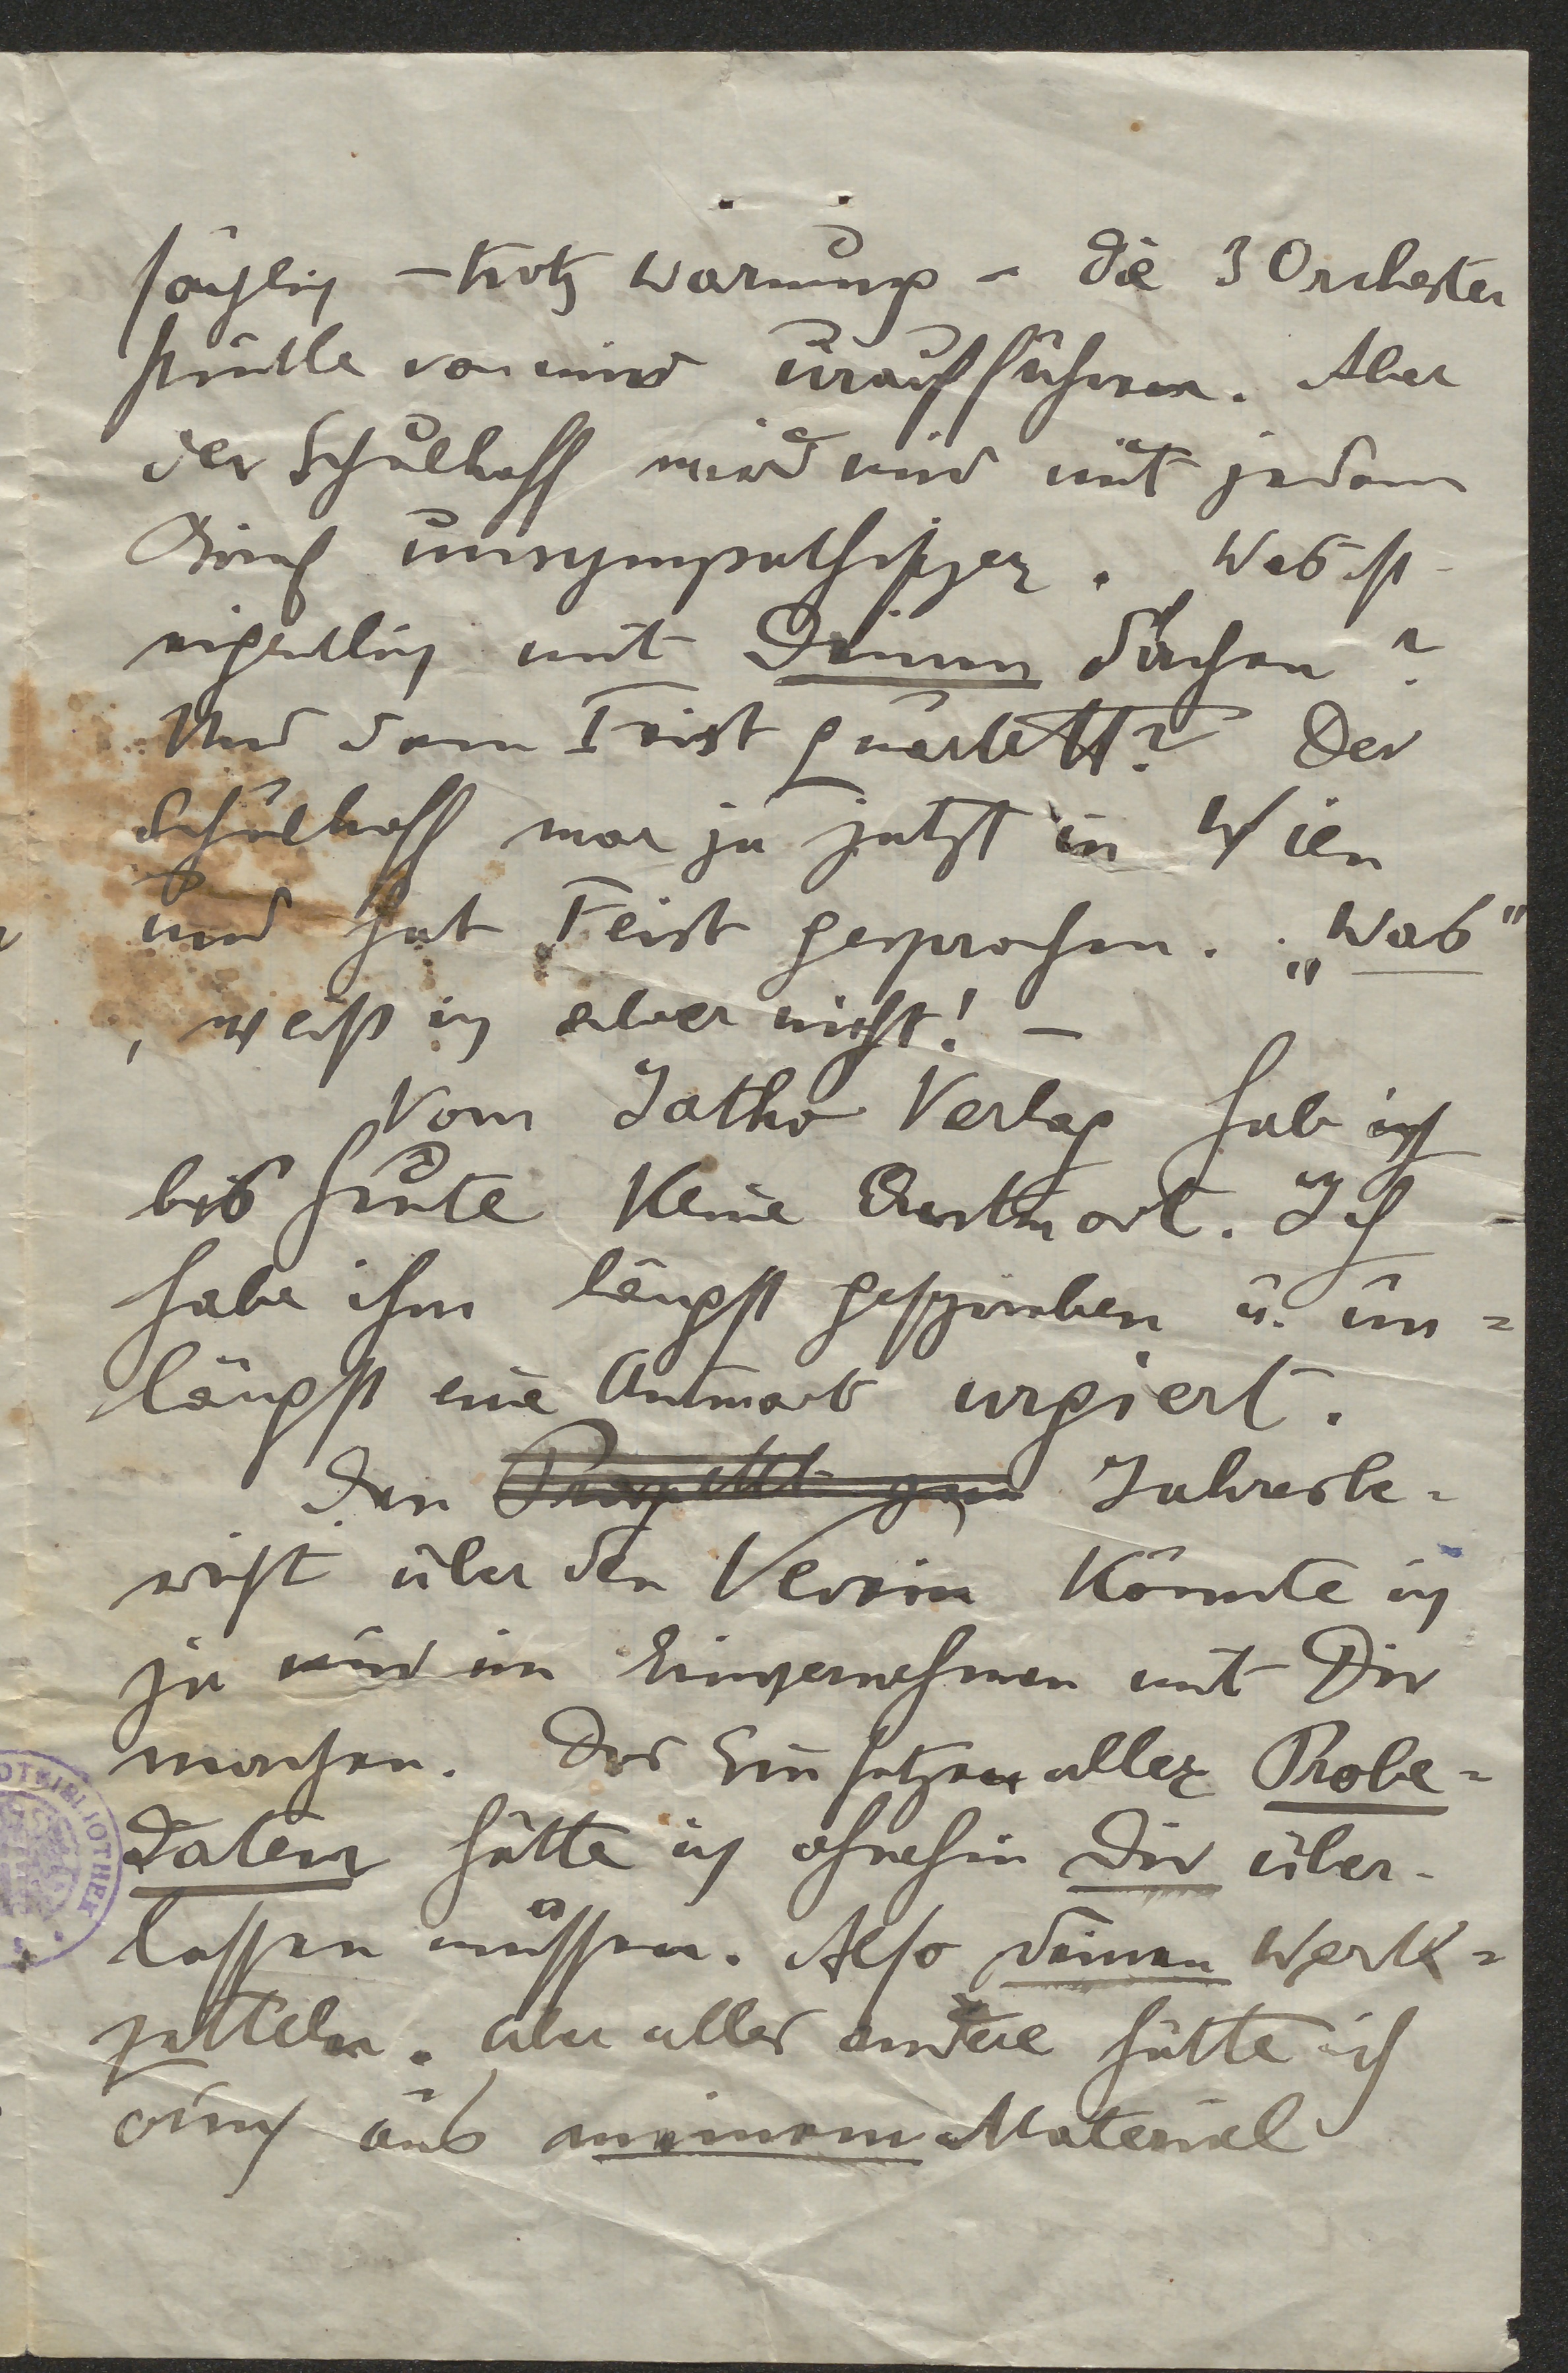 sächlich – trotz Warnung – die 3 Orchester
stücke von mir uraufführen. Aber
der Schulhoff wird mir mit jedem
Brief unsympathischer. Was ist
eigentlich mit Deinen Sachen?
Und dem Feist quartett? Der
Schulhoff war ja jetzt in Wien
und hat Feist gesprochen. „Was"
, weiß ich aber nicht! –
Vom Jatho Verlag hab ich
bis heute keine Antwort. Ich
habe ihm längst geschrieben u. un=
längst eine Antwort urgiert.
Den Jahresbe=
richt über den Verein könnte ich
ja nur im Einvernehmen mit Dir
machen. Das Einsetzen aller Probe=
daten hätte ich ohnehin Dir über-
lassen müssen. Also deinen Werk=
zetteln. aber alles andere hätte ich
auch aus meinem Material